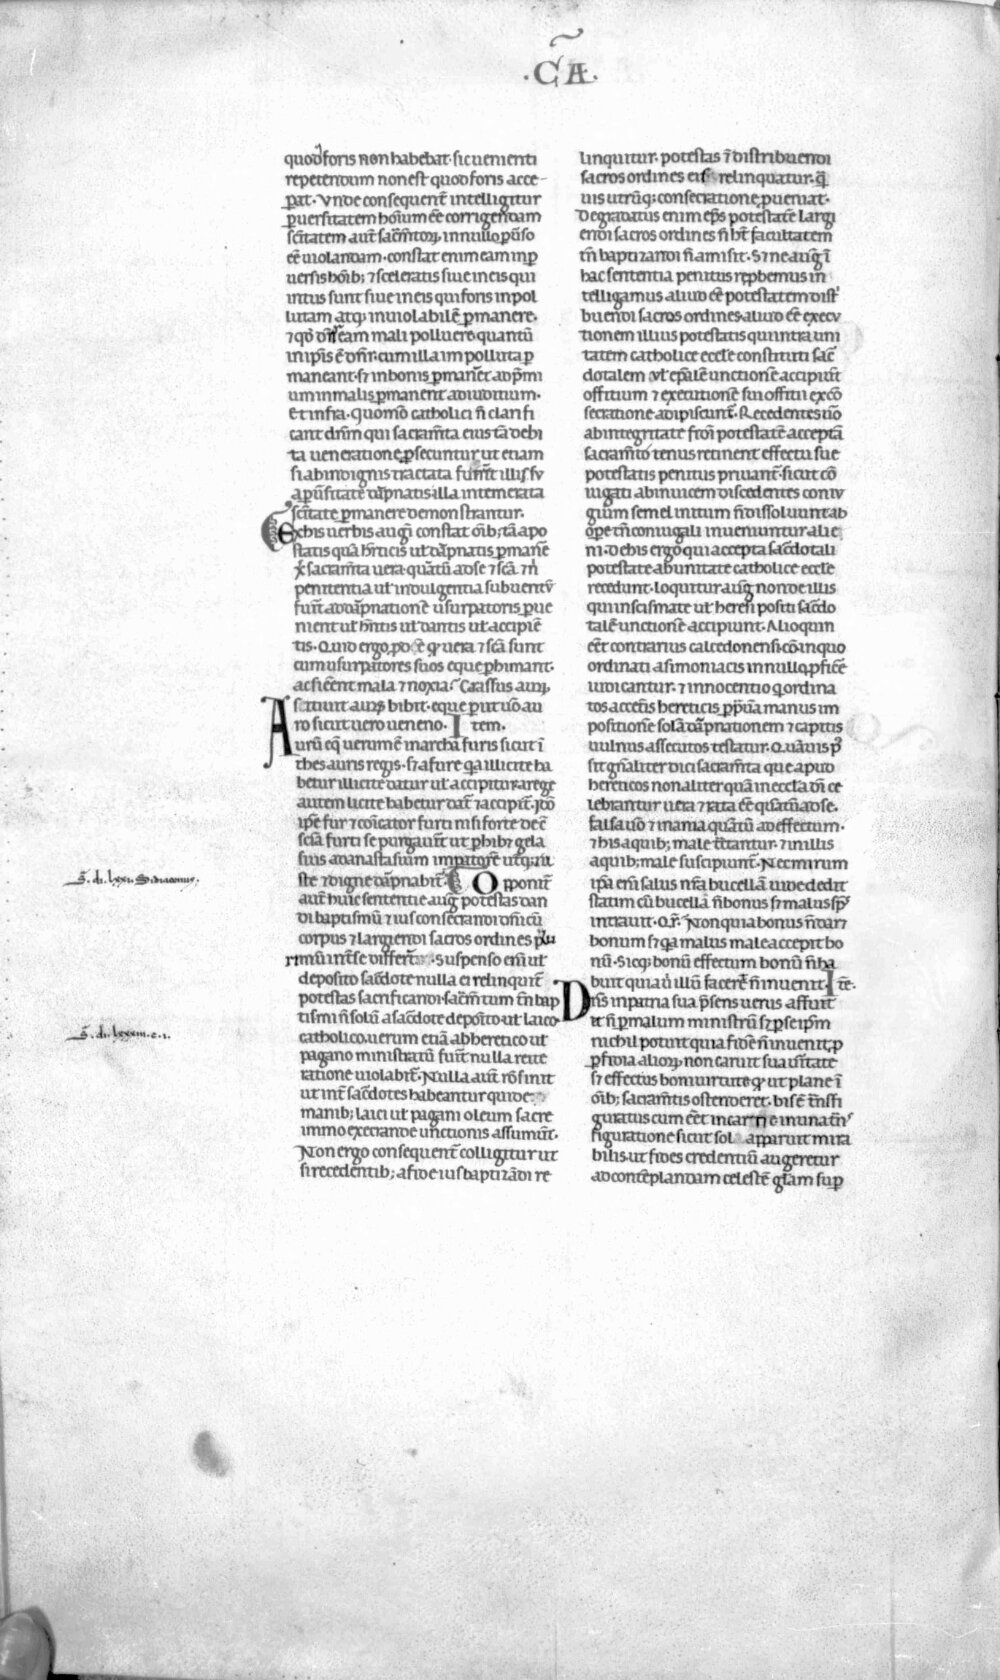 .CA̅.
quod foris non habebat· sic uenienti
repetendum non est quod foris acce-
pat. Vnde consequent̅ intelligitur
ꝑuersitatem ho̅ium ee̅ corrigendam
sc̅itatem aut̅ sac̅m̅toꝝ in nullo ꝑu̅so
ee̅ uiolandam· constat enim eam in ꝑ
uersis ho̅ib; ⁊ sceleratis siue in eis qui
intus sunt siue in eis qui foris inpol
lutam atq; inuiolabile̅ ꝑmanere.
maneant· sꝫ in bonis ꝑmane̅t ad p̅mi
um in malis ꝑmanent ad iuditium.
Et infra. Quomo̅ catholici n̅ clari fi
cant dn̅m qui sacram̅ta eius ta̅ debi
ta ueneratione ꝑsecuntur ut etiam
si ab indignis tractata fueri̅t illis su
a ꝑu̅sitate da̅pnatis illa intemerata
sc̅itate ꝑmanere demonstrantur.
Ex his uerbis aug̅i constat o̅ib; ta̅ apo
statis qua̅ h̅eticis ut̅ da̅pnatis ꝑmane̅
x̅i sacram̅ta uera· qua̅tu̅ ad se ⁊ sc̅a ⁊ n̅
penitentia ut̅ indulgentia subuentu̅
fuit̅ ad da̅pnatione̅ usurpatoris ꝑue
nient ut̅ h̅ntis ut̅ dantis ut̅ accipie̅
tis. Quid ergo ꝓde̅e̅ qd̅ uera ⁊ sc̅a sunt
cum usurpatores suos eque ꝑhimant.
ac si ee̅nt mala ⁊ noxia. Crassus auꝝ
sitiuit auꝝ bibit· eque ꝑiit u̅o au
ro sicut uero ueneno. Item.
Auru̅ eq̅ uerum e̅ in archa furis sicut i̅
thes auris regis. sꝫ a fure qa̅ illicite ha
betur illicite datur ut̅ accipitur a rege
autem licite habetur dat̅ ⁊ accipit̅. Ido̅
ip̅e fur ⁊ co̅icator furti nisi forte de ee̅
scia̅ furti se purgaueri̅t ut ꝓhib; gela
sius ad anastasium imꝑatore̅ utq; iu
ste ⁊ digne da̅pnabit̅. Opponit̅
aut̅ huic sententie aug̅ potestas dan
di baptismu̅ ⁊ ius consecrandi dn̅icu̅
corpus ⁊ largiendi sacros ordines plu
rimu̅ int̅ se differt̅. Suspenso eni̅ ut̅
deposito sac̅dote nulla ei relinquit̅
potestas sacrificandi· sac̅m̅tum t̅n bap
tismi n̅ solu̅ a sac̅dote depo̅ito ut̅ laico
catholico· uerum etia̅ ab heretico ut̅
pagano ministratu̅ fuit̅ nulla reite
ratione uiolabit̅. Nulla aut̅ ro̅ sinit
ut int̅ sac̅dotes habeantur qui de
manib; laici ut̅ pagani oleum sacre
immo execrande unctionis assumu̅t.
Non ergo consequent̅ colligitur ut
si recedentib; a fide ius baptiza̅di re
linquitur· potestas i̅ distribuendi
sacros ordines eis relinquatur· q̅
uis utru̅q; consecratione ꝓueniat.
Degradatus enim ep̅s potestate̅ largi
endi sacros ordines n̅ h̅t facultatem
t̅n baptizandi n̅ amisit. Sꝫ ne aug̅ i̅
hac sententia penitus rep̅hemus in
telligamus aliud ee̅ potestatem dist̅
buendi sacros ordines· aliud ee̅ execu
tionem illius potestatis qui intra uni
tatem catholice eccle̅ constituti sac̅
dotalem ut̅ ep̅ale̅ unctione̅ accipiu̅t
offitium ⁊ executione̅ sui offitii ex co̅
secratione adipiscunt̅. Recedentes u̅o
ab integritate fidei potestate̅ accepta̅
sacram̅to tenus retinent effectu sue
potestatis penitus priuant̅· sicut co̅
iugati ab inuicem discedentes coniu
gium semel initum n̅ dissoluunt ab
ope̅ t̅n coniugali inueniuntur alie
ni. De his ergo qui accepta sac̅dotali
potestate ab unitate catholice eccle̅
recedunt· loquitur aug̅ non de illis
qui in scismate ut̅ heresi positi sac̅do
tale̅ unctione̅ accipiunt. Alioquin
ee̅t contrarius calcedonensi· co̅· in quo
ordinati a simoniacis in nullo ꝓfice̅
iudicantur. ⁊ innocentio q̅ ordina
tos acce̅tis hereticis ꝑ p̅ua̅ manus im
positione̅ sola̅ da̅pnationem ⁊ capitis
uulnus assecutos testatur. Qua̅uis p̅
sit gn̅aliter dici sacram̅ta que apud
hereticos non aliter qua̅ in eccl̅a dei̅ ce
lebrantur uera ⁊ rata ee̅ qua̅tu̅ ad se.
falsa u̅o ⁊ inania qua̅tu̅ ad effectum.
⁊ his a quib; male t̅ctantur. ⁊ in illis
a quib; male suscipiunt̅. Nec mirum
ip̅a eni̅ salus n̅ra bucella̅ iude dedit
statim cu̅ bucella̅ n̅ bonus sꝫ malus sp̅s
intrauit. Q̅r̅. Non quia bonus n̅ dar̅
bonum sꝫ qa̅ malus male accepit bo
nu̅. Sicq; bonu̅ effectum bonu̅ n̅ ha
buit quia u̅ illu̅ facere̅t n̅ inuenit. Ite̅.
Dn̅s in patria sua p̅sens uerus affuit
et n̅ ꝑ malum ministru̅ sꝫ ꝑ se ip̅m
nichil potuit quia fide̅ n̅ inuenit. ꝓ
ꝑfidia alioꝝ non caruit sua ui̅tate
sꝫ effectus boni uirtute qd̅ ut plane i̅
o̅ib; sacram̅tis ostenderet. bis e̅ t̅nsfi
guratus cum ee̅t in carne in una t̅ns
figuratione sicut sol apparuit mira
bilis· ut fides credentiu̅ augeretur
ad conte̅plandam celeste̅ gl̅am suꝑ
S̅. di. lxxi. Si diaconus.
S̅. di. lxxxii. c. i.